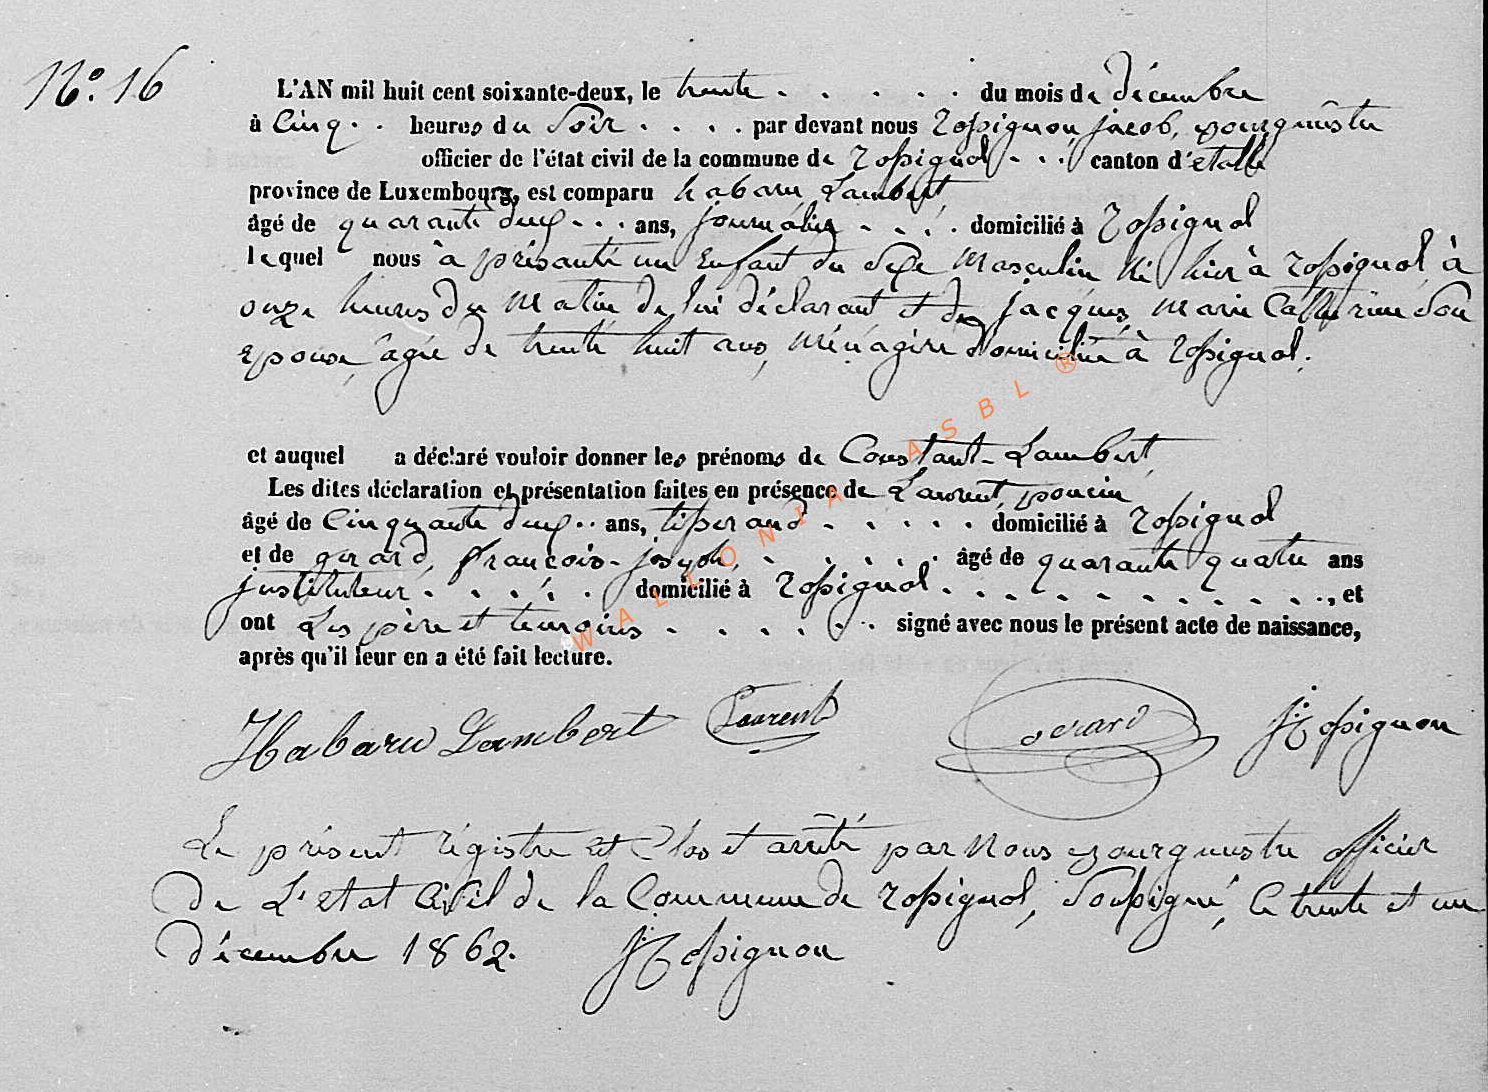 N°. 16
L'AN mil huit cent soixante-deux, le trente . . . . . . du mois de décembre
à Cinq . . heures du Soir . . . . par devant nous Rossignon, jacob, bourguestre
officier de l'état civil de la commune de Rossignol . . . canton d'étalle
province de Luxembourg, est comparu habaru Lambert,
âgé de quarante deux . . . ans, journalier . . . . domicilié à Rossignol
lequel nous à présenté un Enfant du Sexe Masculin né hier à Rossignol à
onze heures du Matin de lui déclarant et de jacques, Marie Catherine Son
Epouse, âgée de trente huit ans, Ménagère domiciliée à Rossignol.
et auquel a déclaré vouloir donner les prénoms de Constant-Lambert,
Les dites déclaration et présentation faites en présence de Laurent, poncin
âgé de Cinquante deux . . ans, tisserand . . . . . domicilié à Rossignol
et de gérard, françois-joseph, . . . . . . âgé de quarante quatre ans
justituteur . . . . . domicilié à Rossignol . . . . . . . . . . . ., et
ont Les père et temoins . . . . . . . signé avec nous le présent acte de naissance,
après qu'il leur en a été fait lecture.
Habaru Lambert Laurent Gerard J: Rossignon
Le présent régistre Est Clos et arrêté par Nous bourguestre officier
de L'état Civil de la Commune de Rossignol, Soussigné, le trente et un
décembre 1862. J: Rossignon
WALLONIA ASBL ®